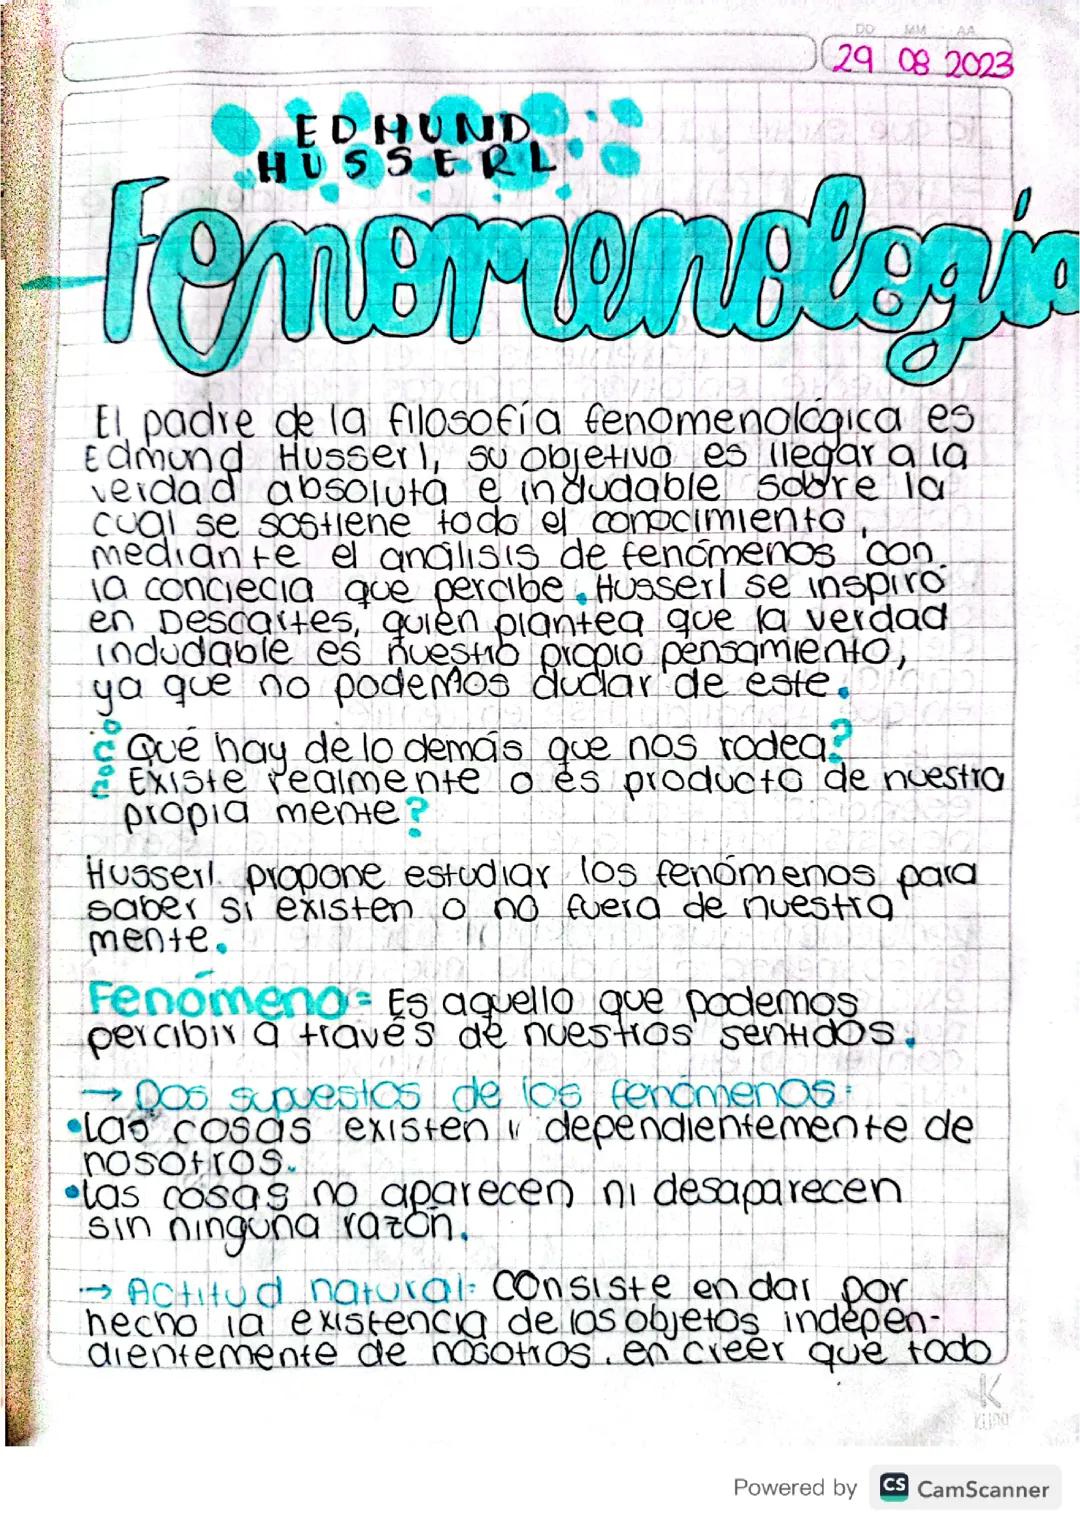 DD MM AA
29 08 2023
EDMUND
HUSSERL
Fenomenología
El padre de la filosofía fenomenológica es
Edmund Husserl, su objetivo es llegar a la
verdad absoluta e indudable sobre la
cual se sostiene todo el conocimiento,
mediante el análisis de fenómenos con
la conciecia que percibe. Husserl se inspiró
en Descartes, quien plantea que la verdad
indudable es nuestro propio pensamiento,
ya que no podemos dudar de este.
¿Qué hay de lo demás que nos rodea?
¿Existe realmente o es producto de nuestra
propia mente?
Husserl propone estudiar los fenómenos para
saber si existen o no fuera de nuestra
mente.
Fenómeno = Es aquello que podemos
percibir a través de nuestros sentidos.
→ Dos supuestos de los fenómenos:
•Las cosas existen dependientemente de
nosotros.
•Las cosas no aparecen ni desaparecen
sin ninguna razón.
→ Actitud natural: Consiste en dar por
hecho la existencia de los objetos indepen-
dientemente de nosotros, en creer que todo
K
Powered by CS CamScanner